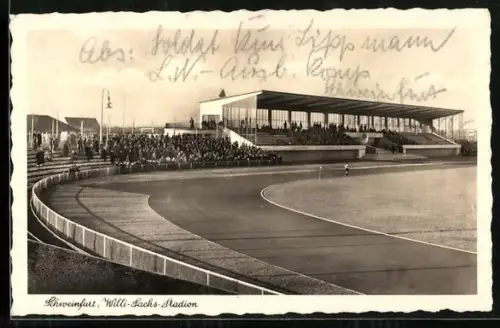 Abs: Soldat Kurt Lippmann
L.N.-Ausb. Komp.
Schweinfurt
Schweinfurt, Willi-Sachs-Stadion